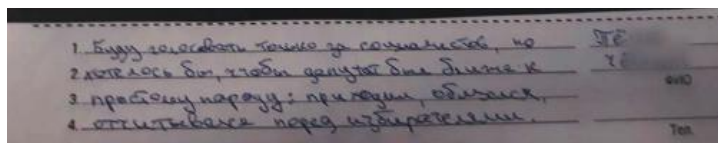 1. Буду голосовать только за социалистов, но
2. хотелось бы, чтобы депутат был ближе к
3. простому народу: приходил, общался,
4. отчитывался перед избирателями.
ФИО
Тел